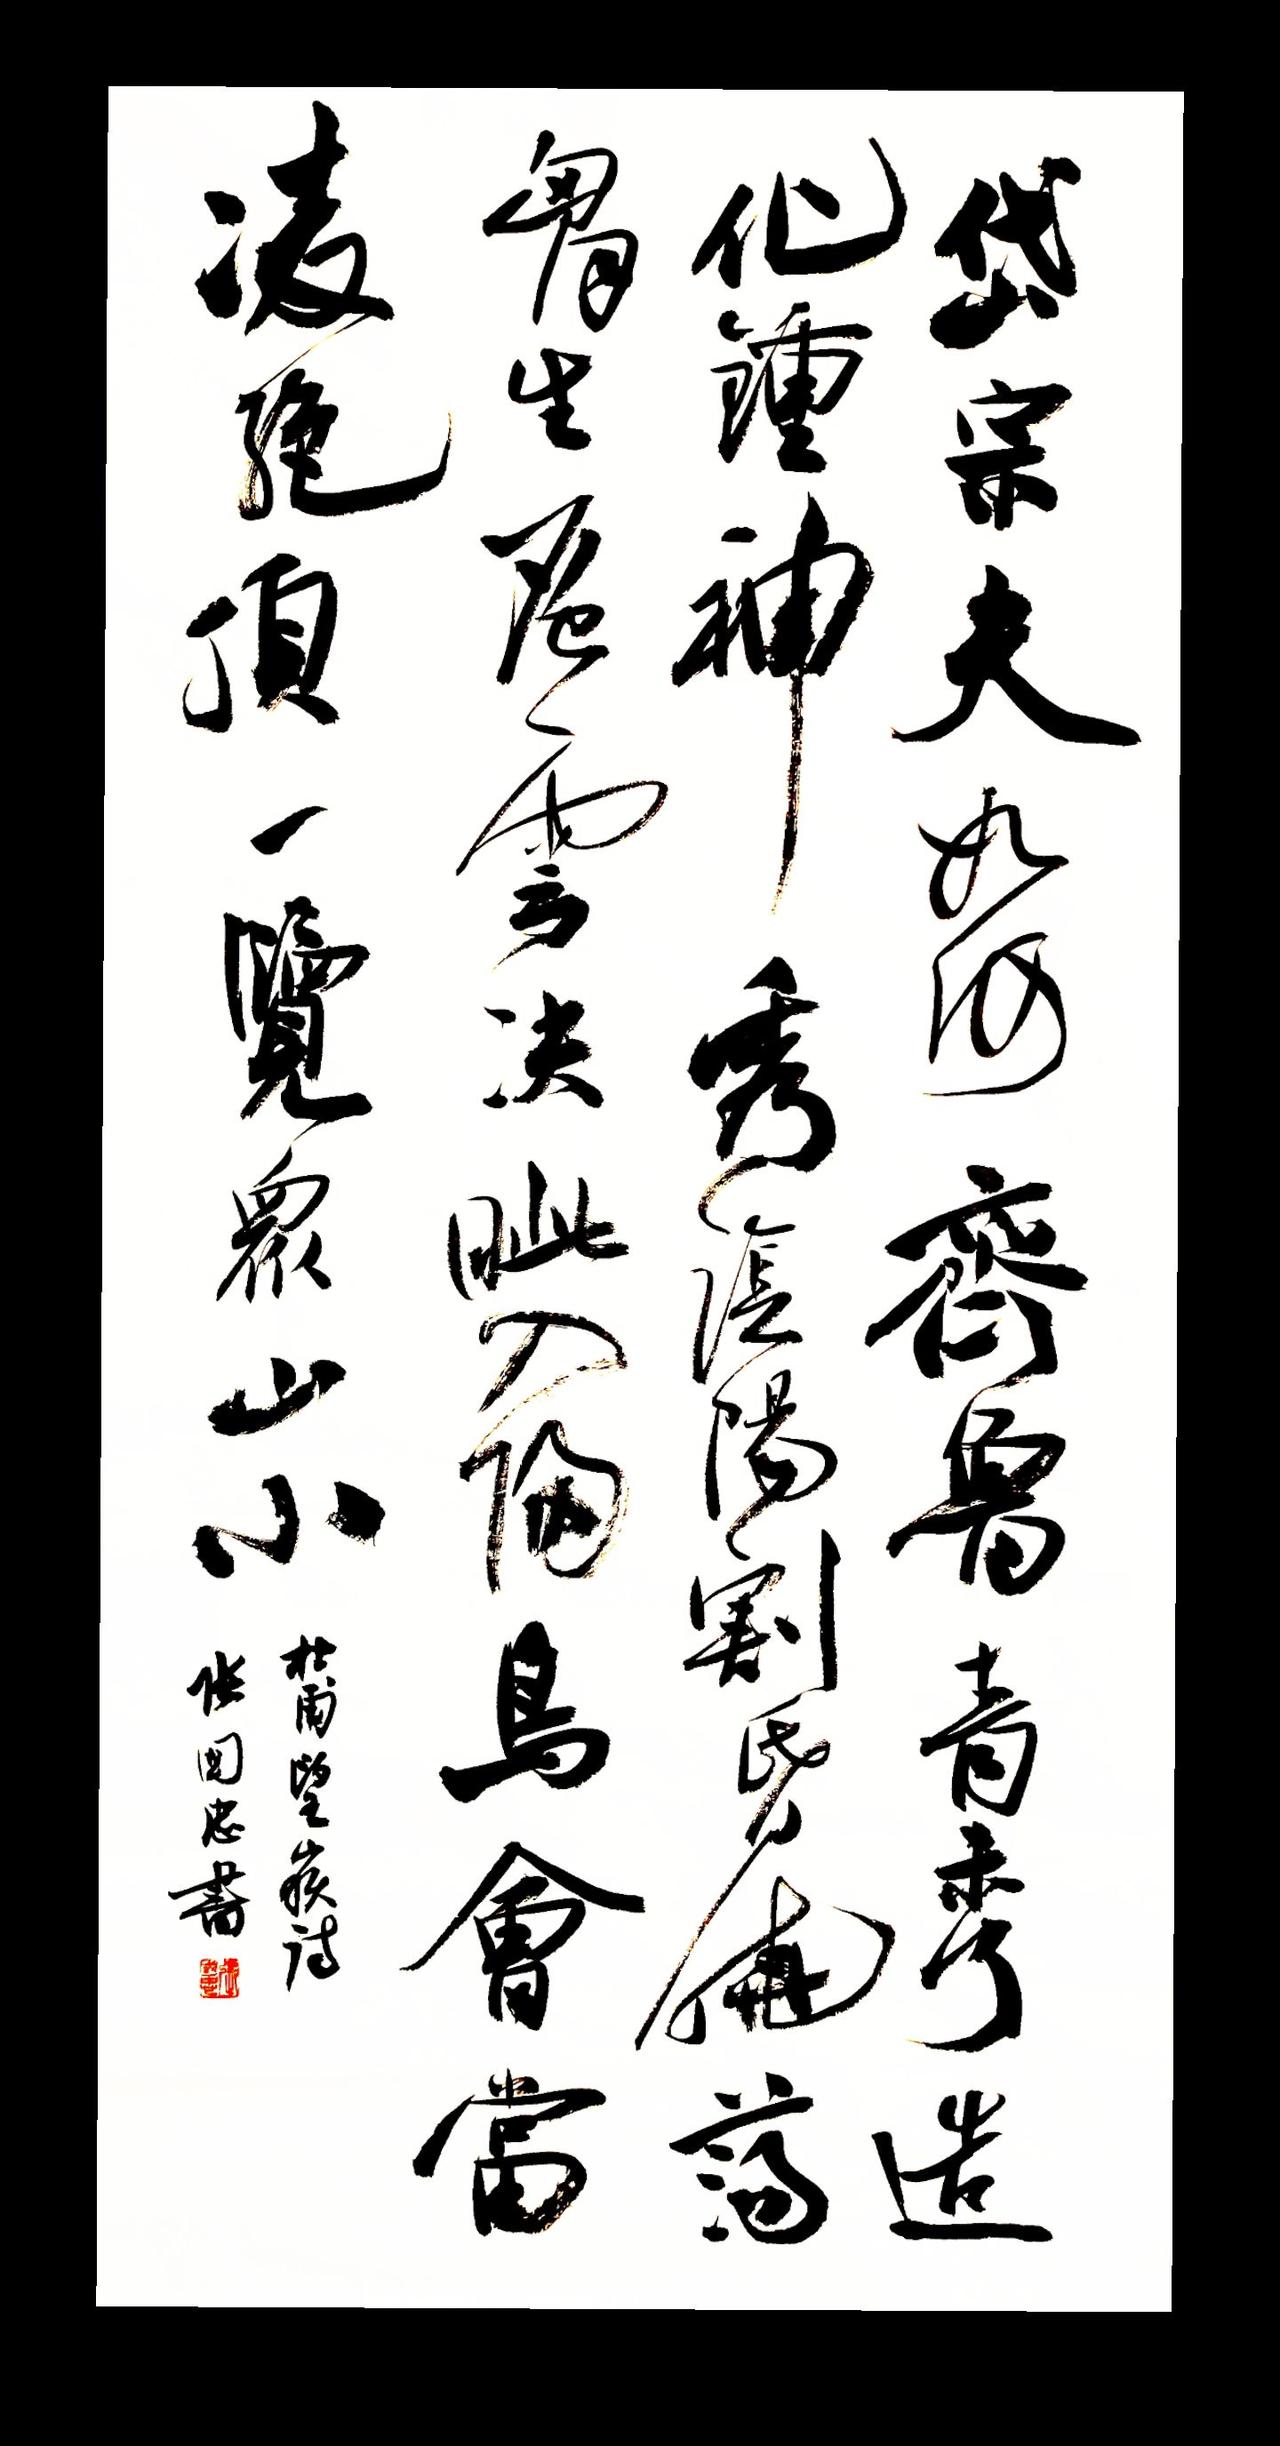 岱宗夫如何齊魯青未了造
化鍾神秀陰陽割昏曉蕩
胷生層雲決眦入歸鳥會當
凌絕頂一覽眾山小
杜甫望嶽詩
張国忠書